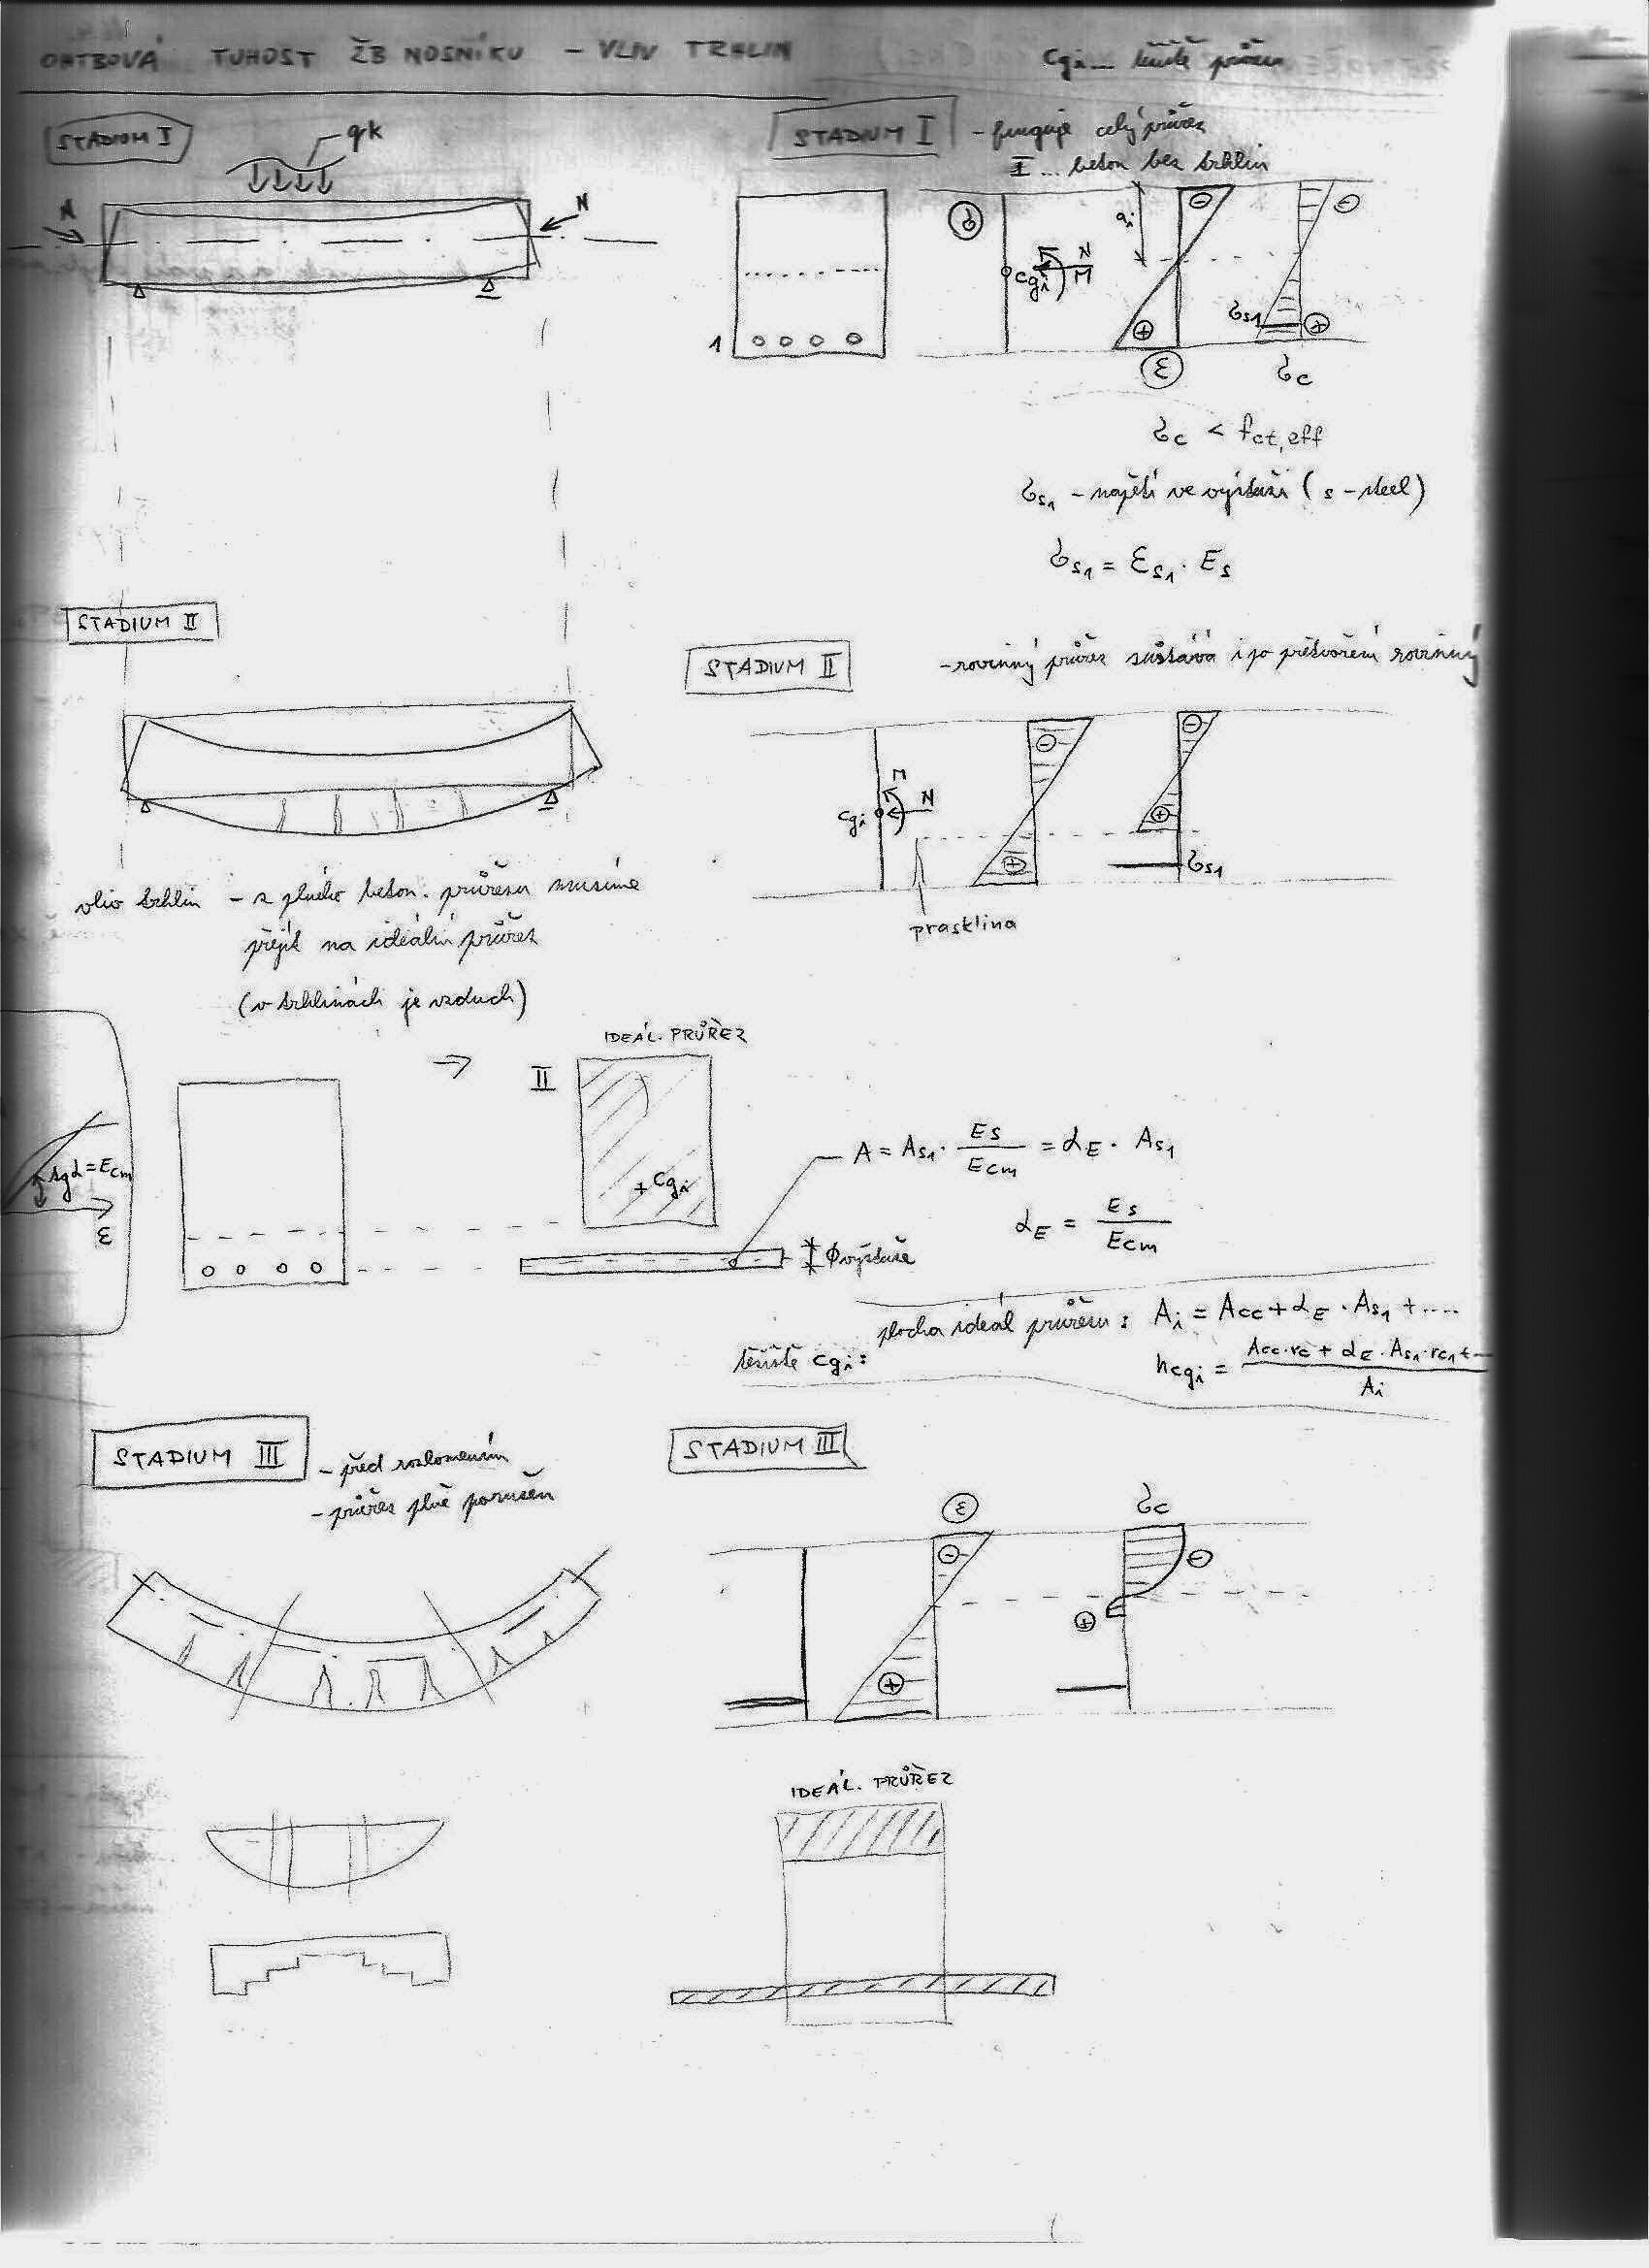 OHYBOVÁ TUHOST ŽB NOSNÍKU - VLIV TRHLIN
cgi... těžiště průřezu
STADIUM I
qk
N
N
STADIUM I - funguje celý průřez
I ... beton bez trhlin
1
σ
cgi
N
M
ai
⊖
⊕
ε
⊖
σs1
⊕
σc
σc < fct,eff
σs1 - napětí ve výztuži (s - steel)
σs1 = εs1 · Es
STADIUM II
STADIUM II - rovinný průřez zůstává i po přetvoření rovinný
cgi
M
N
⊖
⊕
⊖
⊕
σs1
prasklina
vliv trhlin - z plného beton. průřezu musíme
přejít na ideální průřez
(v trhlinách je vzduch)
→
IDEÁL. PRŮŘEZ
II
+ cgi
tgα = Ecm
ε
A = As1 · Es/Ecm = αE · As1
αE = Es/Ecm
ϕ výztuže
plocha ideál průřezu : Ai = Acc + αE · As1 + ....
těžiště cgi : hcgi = (Acc·rc + αE · As1·rc1 + ...)/Ai
STADIUM III - před rozlomením
- průřez plně porušen
STADIUM III
ε
σc
⊖
⊖
⊕
⊕
IDEÁL. PRŮŘEZ